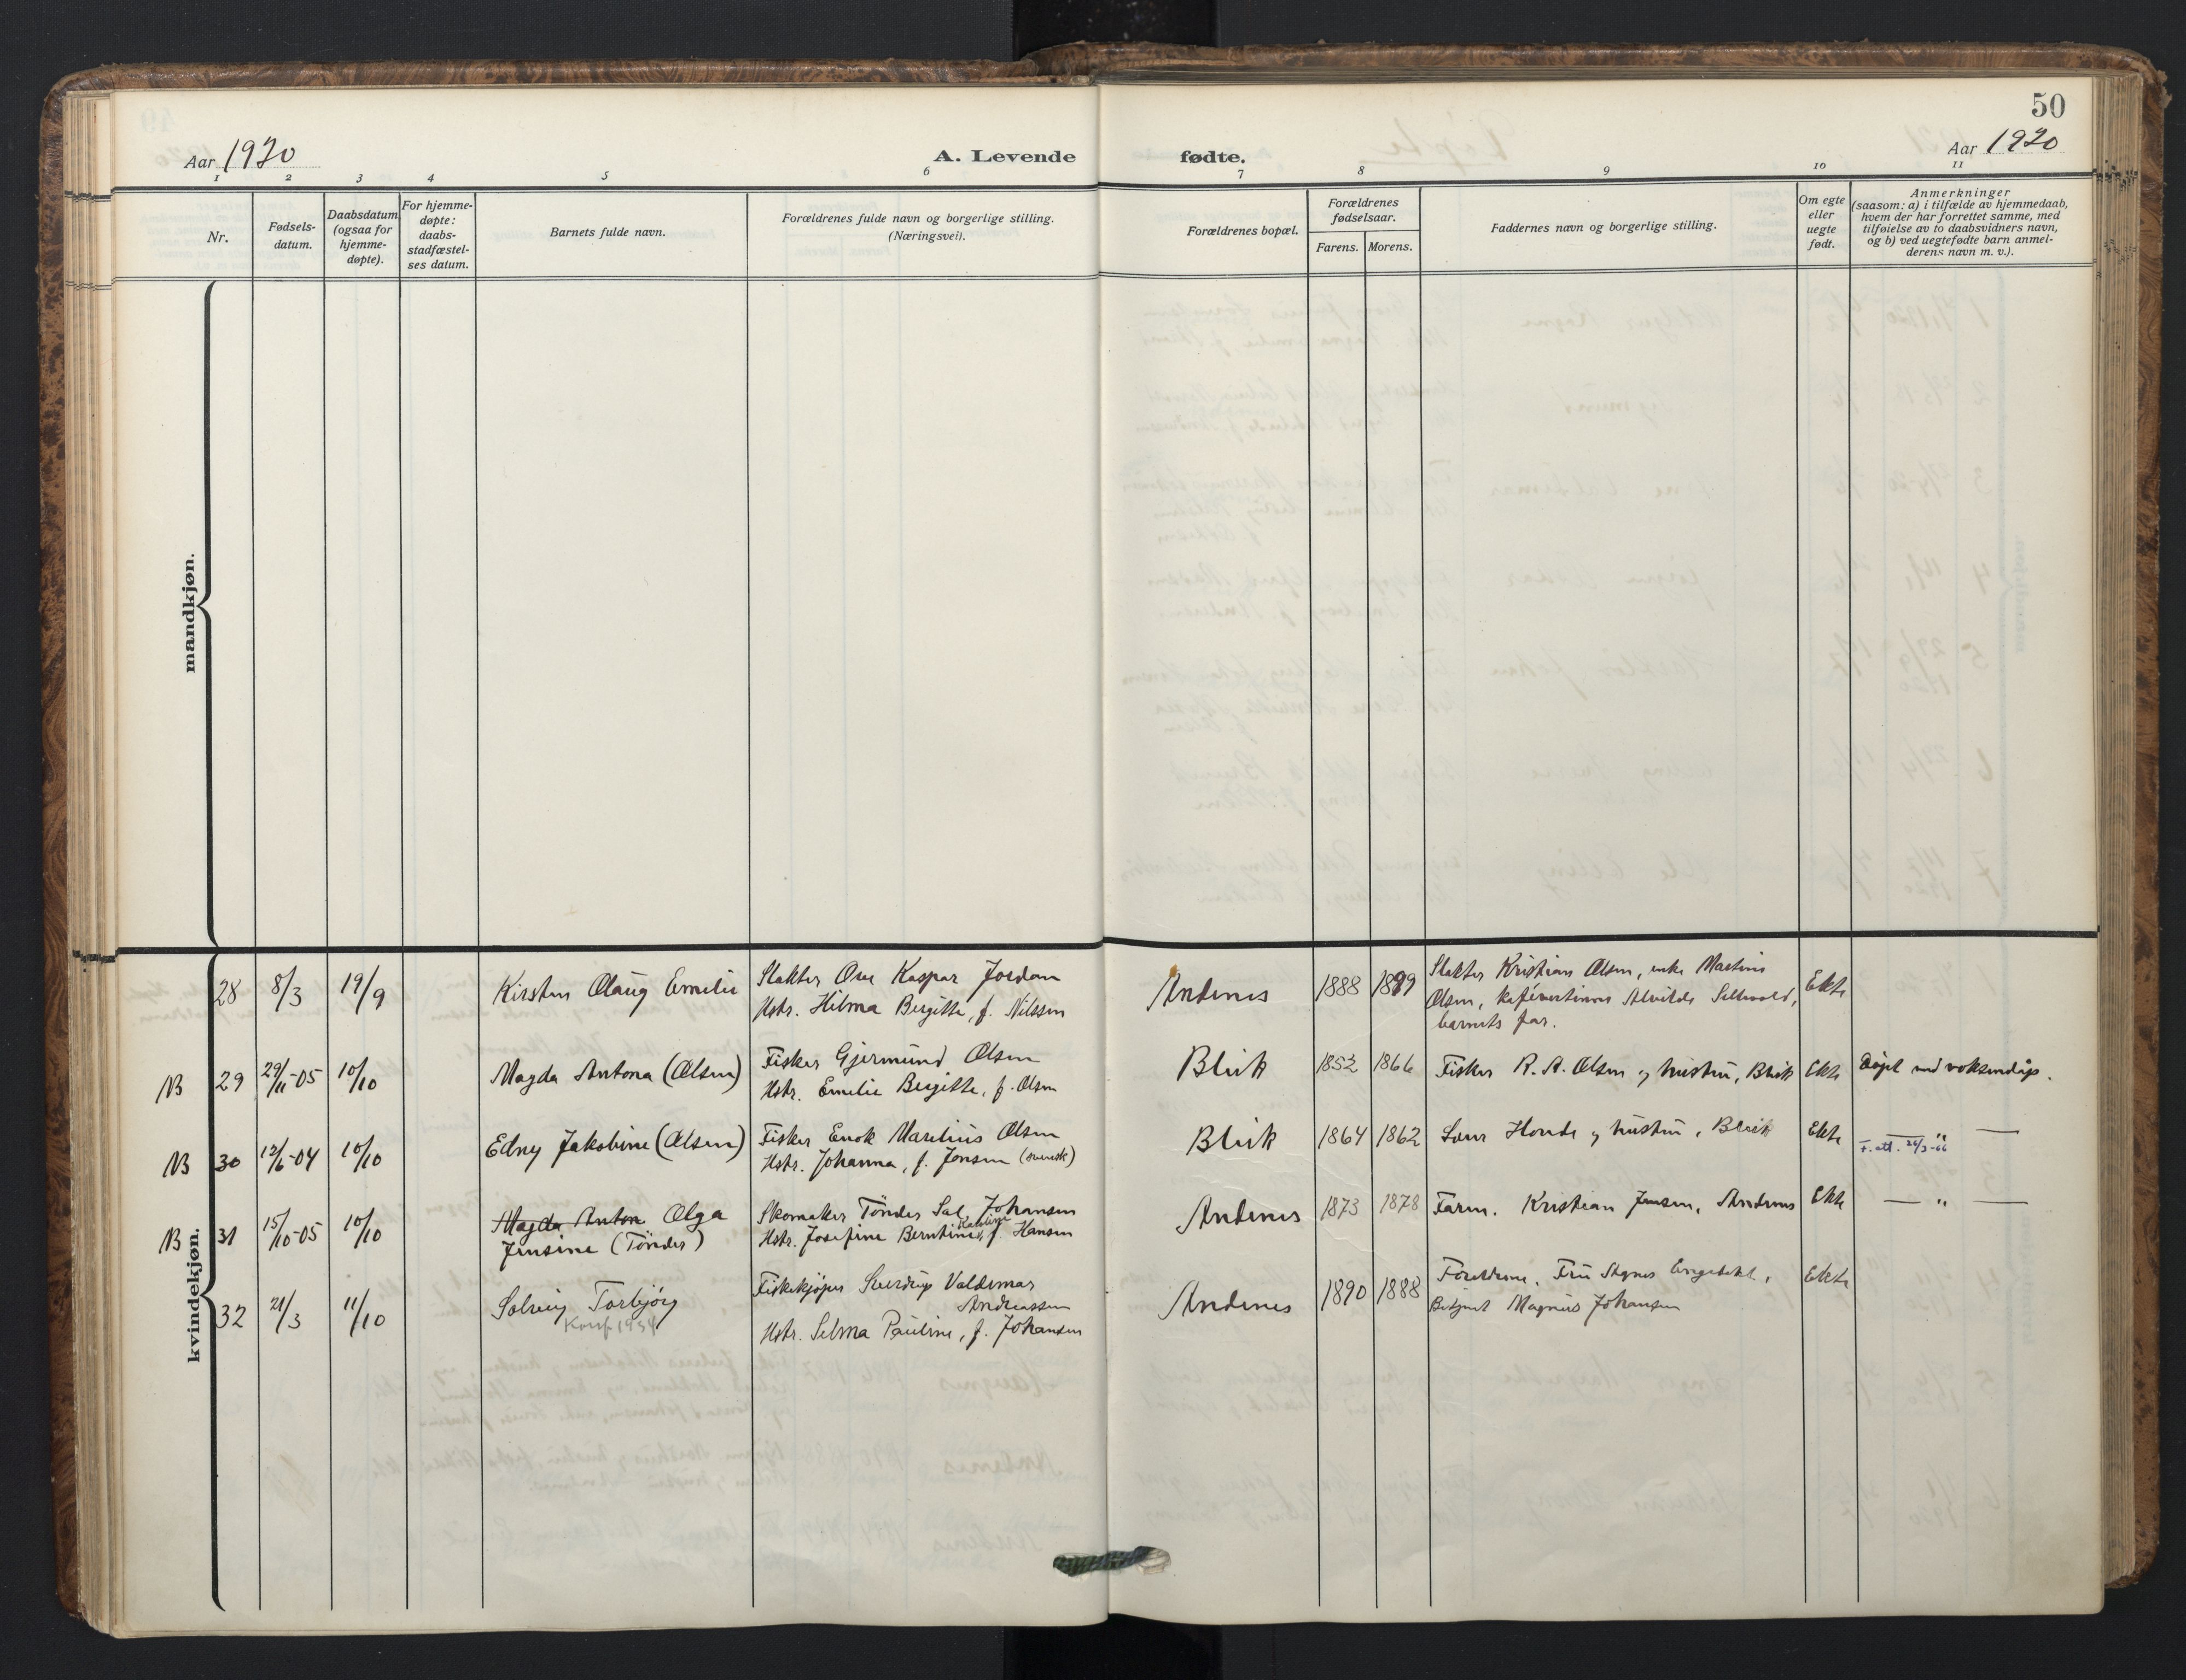 50
Aar 1920
A. Levende
fødte.
Aar 1920
1 2 3 4 5 6 7 8 9 10 11
Nr.
Fødsels-
datum.
Daabsdatum
(ogsaa for
hjemme-
døpte).
For hjemme-
døpte:
daabs-
stadfæstel-
ses datum.
Barnets fulde navn.
Forældrenes fulde navn og borgerlige stilling.
(Næringsvei).
Forældrenes bopæl.
Forældrenes
fødselsaar.
Farens. Morens.
Faddernes navn og borgerlige stilling.
Om egte
eller
uegte
født.
Anmerkninger
(saasom: a) i tilfælde av hjemmedaab,
hvem der har forrettet samme, med
tilføielse av to daabsvidners navn,
og b) ved uegtefødte barn anmel-
derens navn m. v.).
mandkjøn.
kvindekjøn.
28 8/3 19/9 Kirsten Olaug Emelie
Slakter Ove Kaspar Jordan
Hstr. Hilma Birgitte, f. Nilssen
Andenes 1888 1899
Slakter Kristian Olsen, enke Martine
Olsen, kafévertinne Alvilde Sellevold,
barnets far.
Ekte
NB 29 29/11-05 10/10 Magda Antona (Olsen)
Fisker Gjermund Olsen
Hstr. Emelie Birgitte, f. Olsen
Bleik 1852 1866
Fisker R. A. Olsen og hustru, Bleik
Ekte
Døpt ved voksendåp.
NB 30 12/6-04 10/10 Edny Jakobine (Olsen)
Fisker Enok Marelius Olsen
Hstr. Johanna, f. Jonsen (svensk)
Bleik 1864 1862
Lars Honde og hustru, Bleik
Ekte
— " —
F. att. 24/3-66
NB 31 15/10-05 10/10 Magda Anton Olga
Jensine (Tönder)
Skomaker Tönder Sal. Johansen
Hstr. Josefine Berntine Karoline, f. Hansen
Andenes 1873 1878
Farm. Kristian Jensen, Andenes
Ekte
— " —
32 21/3 11/10 Solveig Torbjörg
Konf 1934
Fiskekjøper Sverdrup Valdemar
Andreassen
Hstr. Selma Pauline, f. Johansen
Andenes 1890 1888
Foreldrene, Fru Agnes
Betjent Magnus Johansen
Ekte